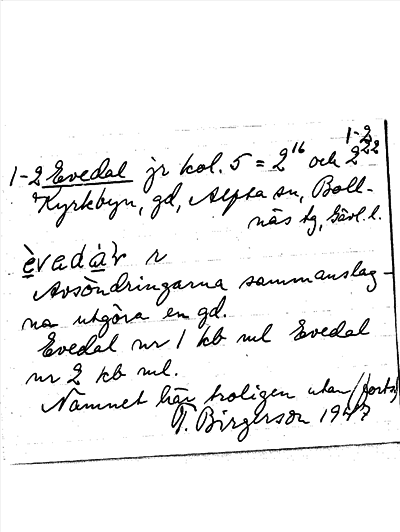 1-2
1-2 Evedal jr kol. 5 = 2¹⁶ och 2²²
Kyrkbyn, gd, Alfta sn, Boll-
näs tg, Gävl. l.
èvadàv r
Avsöndringarna sammanslag-
na utgöra en gd.
Evedal nr 1 kb ml Evedal
nr 2 kb ml.
Namnet här troligen utan /forts/
T. Birgerson 1947